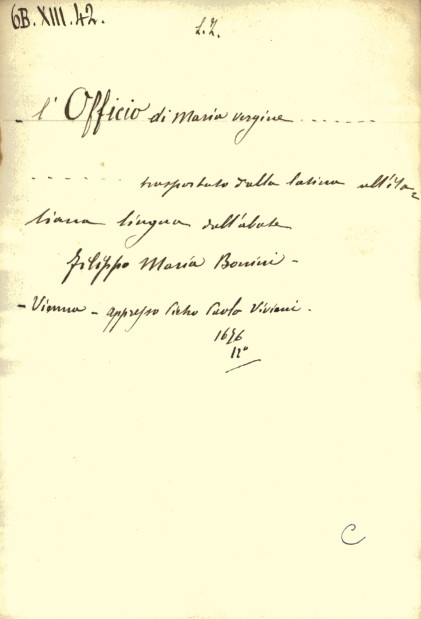 6B. XIII. 42.
L'Officio di Maria vergine ......
...... trasportato dalla latina all'ita-
liana lingua dall'abate
Filippo Maria Bonini -
- Vienna - appresso Pietro Paolo Viviani.
1676
12°
C